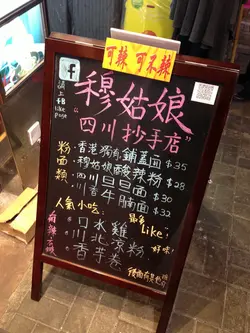 可辣 可不辣
f
上
FB
like
post
穆姑娘
四川抄手店"
粉面類
·香港獨有鋪蓋面 $35
·穆姑娘酸辣粉 $28
·四川旦旦面 $30
·川香牛腩面 $32
人氣小吃:
·口水雞
·川北涼粉
·香芋卷
"Like"
好味!